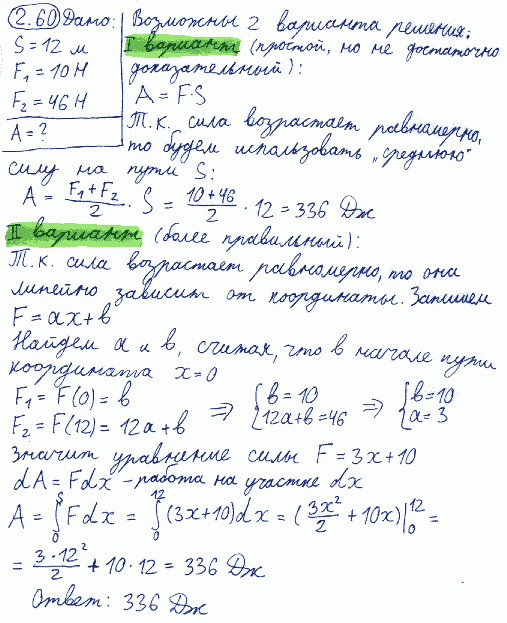 2.60 Дано: Возможны 2 варианта решения:
S = 12 м
F₁ = 10 Н
F₂ = 46 Н
A = ?
I вариант (простой, но не достаточно
доказательный):
A = F·S
Т.к. сила возрастает равномерно,
то будем использовать „среднюю"
силу на пути S:
A = (F₁+F₂)/2 · S = (10+46)/2 · 12 = 336 Дж
II вариант (более правильный):
Т.к. сила возрастает равномерно, то она
линейно зависит от координаты. Запишем
F = ax+b
Найдем a и b, считая, что в начале пути
координата x=0
F₁ = F(0) = b
F₂ = F(12) = 12a+b ⇒ {b=10 12a+b=46 ⇒ {b=10 a=3
Значит уравнение силы F = 3x+10
dA = Fdx – работа на участке dx
A = ∫₀ˢ Fdx = ∫₀¹² (3x+10)dx = (3x²/2 + 10x)|₀¹² =
= 3·12²/2 + 10·12 = 336 Дж
Ответ: 336 Дж